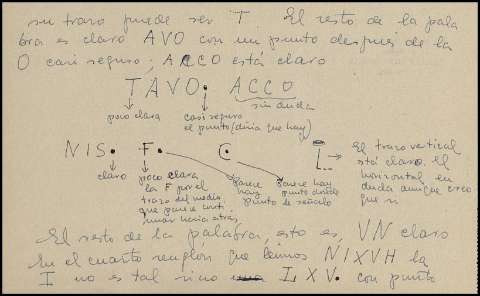 su trazo puede ser T El resto de la pala
bra es claro AVO con un punto después de la
O casi seguro; ACCO está claro
TAVO. ACCO
sin duda
poco clara casi seguro
el punto (diría que hay)
NIS. F. C L
claro
poco clara
la F por el
trazo del medio
que parece conti
nuar hacia atrás
parece
hay
punto
parece hay
punto donde
lo señalo
El trazo vertical
está claro. El
horizontal en
duda aunque creo
que si
El resto de la palabra, esto es, VN claro
En el cuarto renglón que leimos NIXVH la
I no es tal sino LXV. con punto